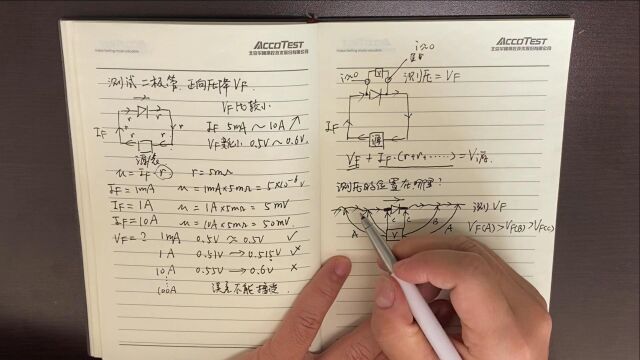 ACCOTEST
北京华峰测控技术股份有限公司
测试二极管 正向压降 VF.
VF 比较小
IF 5mA ~ 10A ↗
VF 较小 0.5V ~ 0.6V
IF
r
r
r
r
r
源表
u = IF · r r = 5mΩ
IF = 1mA u = 1mA × 5mΩ = 5×10⁻⁶V
IF = 1A u = 1A × 5mΩ = 5mV
IF = 10A u = 10A × 5mΩ = 50mV
VF = ? 1mA 0.5V ≈ 0.5V ✓
1A 0.51V → 0.515V ×
10A 0.55V → 0.6V ×
100A 误差不能接受
ACCOTEST
北京华峰测控技术股份有限公司
i≈0
i≈0
V
测压 = VF
IF
源
VF + IF·(r+r,......) = V源.
测压的位置在哪里?
测 VF
A
V
C
C
B
A
VF(A) > VF(B) > VF(C)